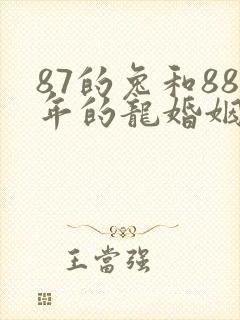 87的兔和88
年的龍婚姻
王當强